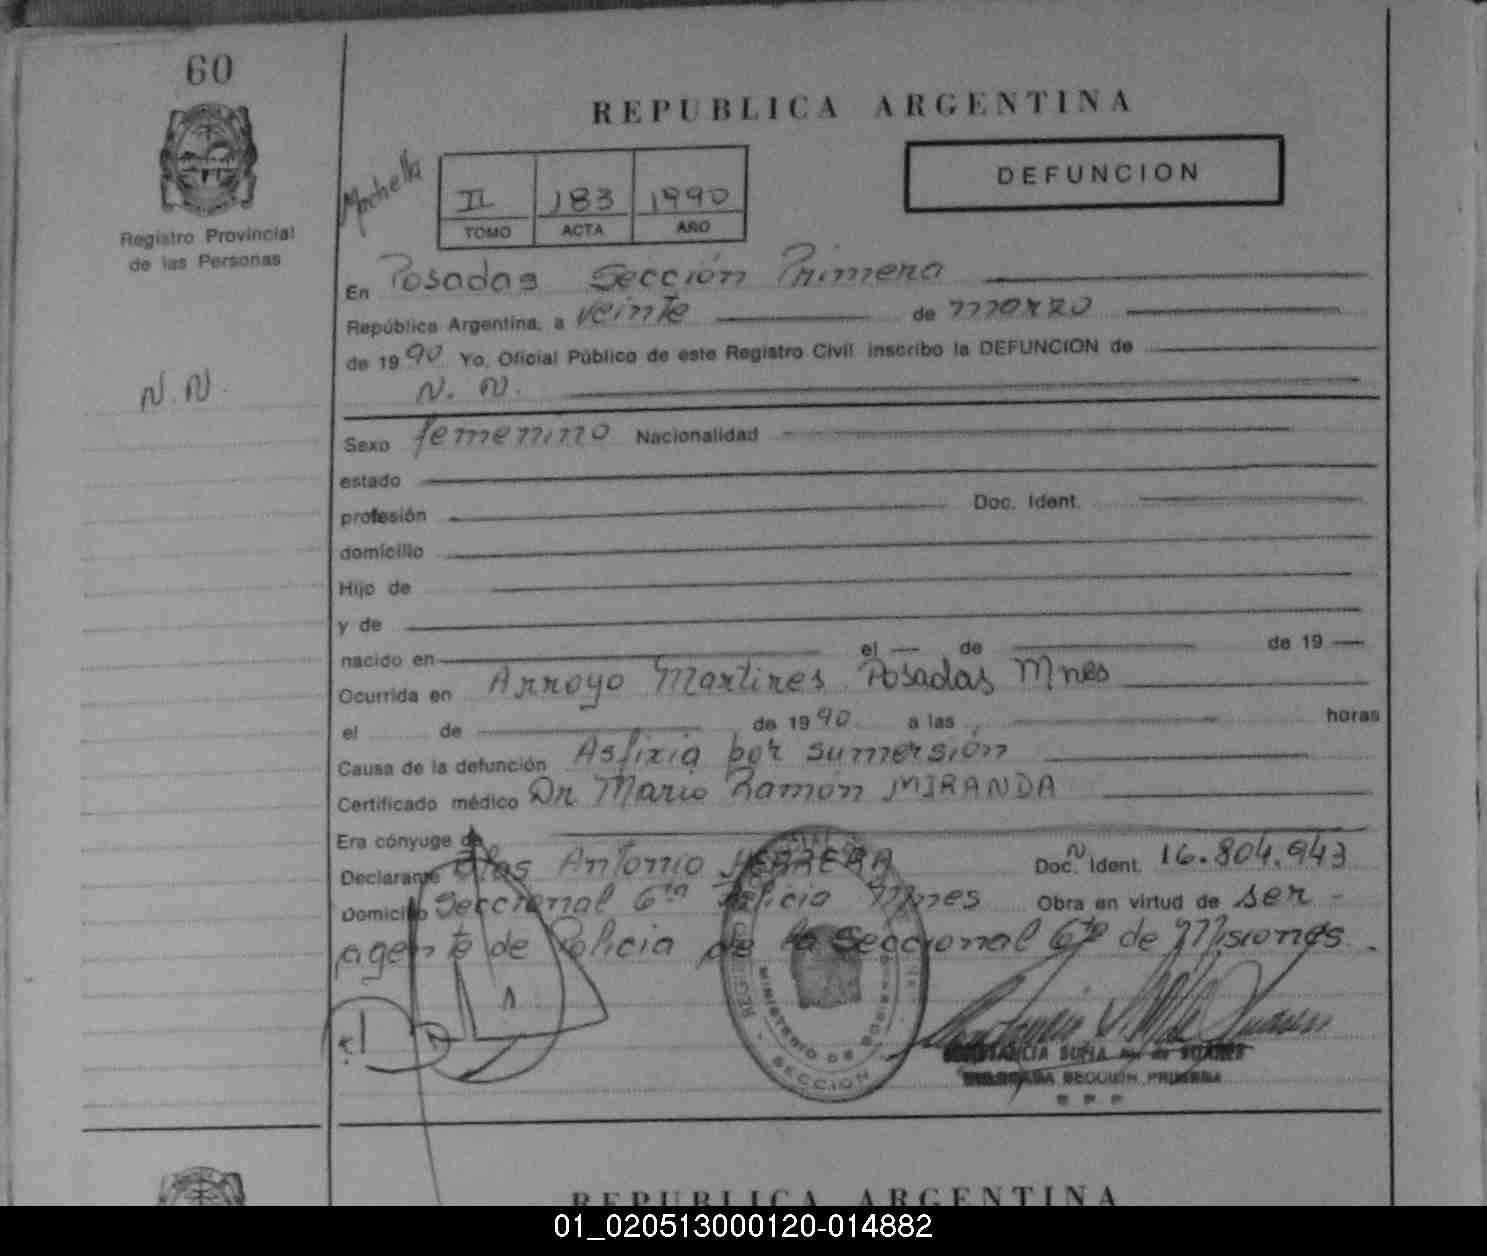 60
REPUBLICA ARGENTINA
Registro Provincial
de las Personas
II 183 1990
TOMO ACTA AÑO
DEFUNCION
En Posadas Sección Primera
República Argentina, a veinte de marzo
de 1990 Yo, Oficial Público de este Registro Civil inscribo la DEFUNCION de
N. N.
N. N.
Sexo femenino Nacionalidad
estado
profesión Doc. Ident.
domicilio
Hijo de
y de
nacido en el de de 19
Ocurrida en Arroyo Martires Posadas Mnes
el de de 1990 a las horas
Causa de la defunción Asfixia por sumersión
Certificado médico Dr. Mario Ramón MIRANDA
Era cónyuge de
Declarante Blas Antonio HERRERA Doc. N Ident. 16.804.943
Domicilio Seccional 6ta Policia Mnes Obra en virtud de ser -
agente de Policia de la Seccional 6ta de Misiones.
MINISTERIO DE GOBIERNO
SECCION
SECCION PRIMERA
REPUBLICA ARGENTINA
01_020513000120-014882